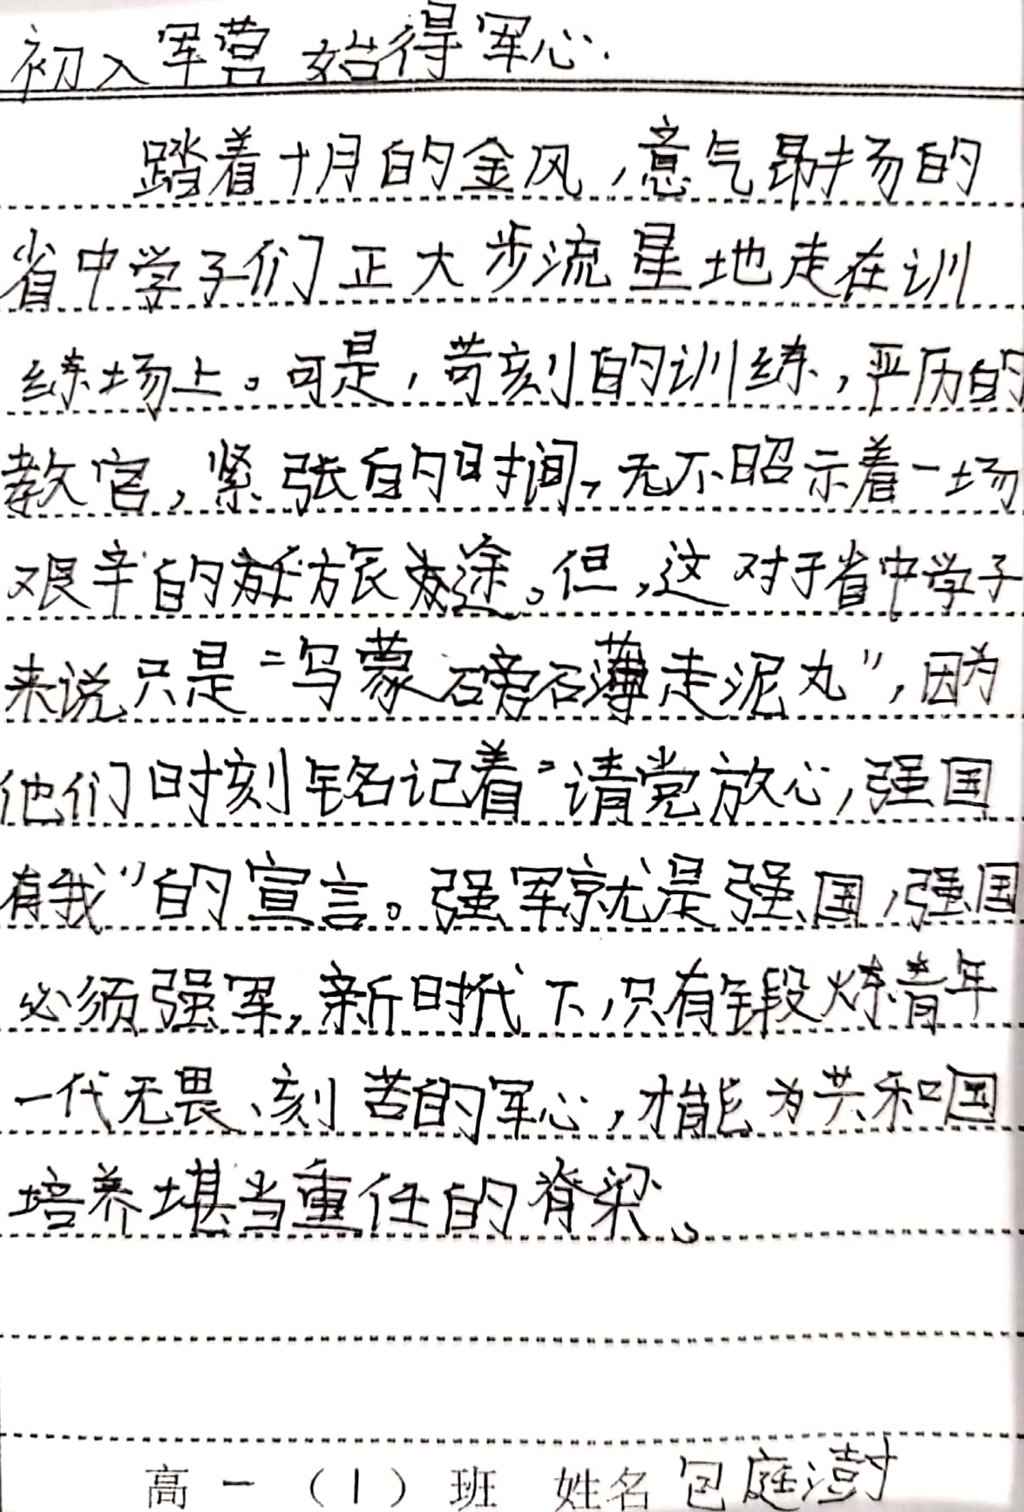 初入军营 始得军心.
踏着十月的金风,意气昂扬的
省中学子们正大步流星地走在训
练场上。可是,苛刻的训练,严历的
教官,紧张的时间,无不昭示着一场
艰辛的旅途。但,这对于省中学子
来说只是“乌蒙磅礴走泥丸”,因为
他们时刻铭记着“请党放心,强国
有我”的宣言。强军就是强国,强国
必须强军,新时代下,只有锻炼青年
一代无畏、刻苦的军心,才能为共和国
培养堪当重任的脊梁。
高一(1)班 姓名 包庭澍